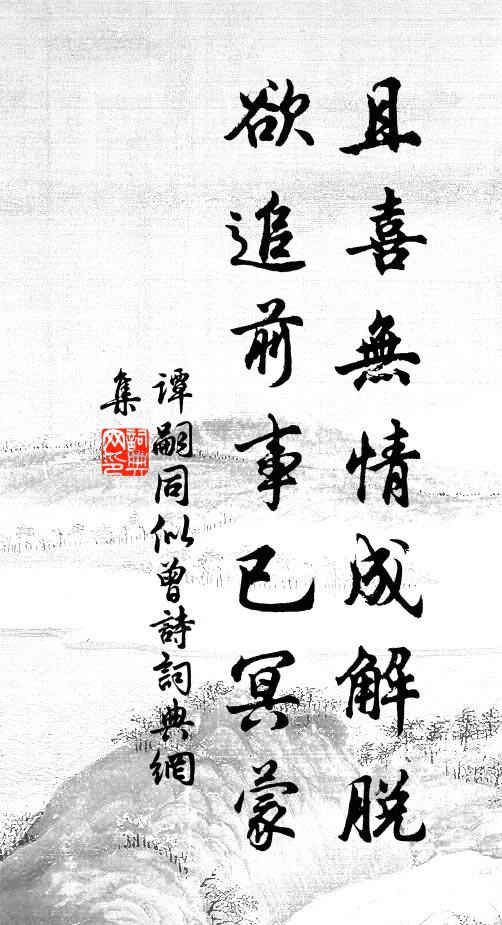 且喜無情成解脱
欲追前事已冥蒙
譚嗣同似曾詩詞典網
集
詞典网印